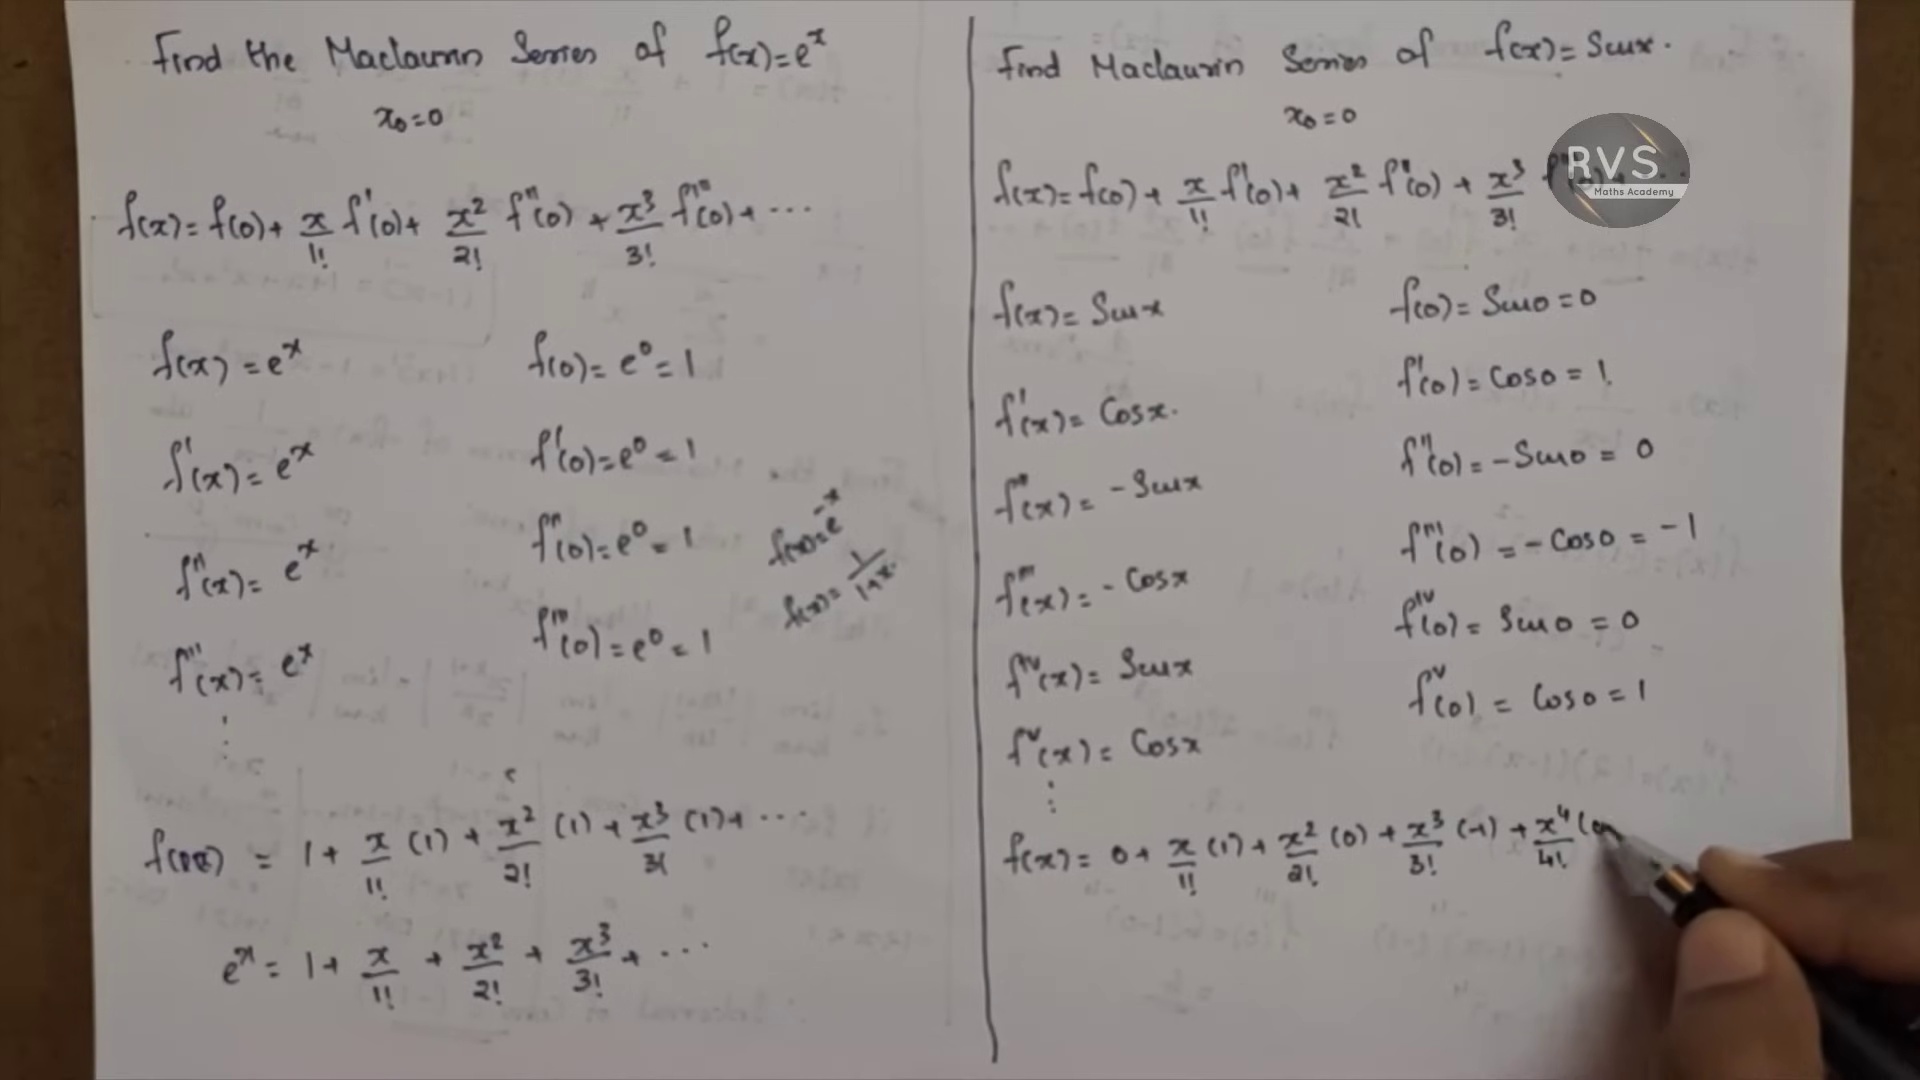 Find the Maclaurin Series of f(x)=e^x
x₀=0
f(x)=f(0)+ x/1! f'(0)+ x²/2! f''(0) + x³/3! f'''(0)+ ...
f(x)=e^x f(0)=e⁰=1
f'(x)=e^x f'(0)=e⁰=1
f''(x)=e^x f''(0)=e⁰=1
f'''(x)=e^x f'''(0)=e⁰=1
⋮
f(x)=e^-x
f(x)=1/1+x.
= 1+ x/1! (1) + x²/2! (1)+ x³/3! (1)+ ...
e^x = 1+ x/1! + x²/2! + x³/3! + ...
Find Maclaurin Series of f(x)=Sinx.
x₀=0
RVS
Maths Academy
f(x)=f(0)+ x/1! f'(0)+ x²/2! f''(0) + x³/3!
f(x)=Sinx f(0)=Sin0=0
f'(x)=Cosx. f'(0)=Cos0=1.
f''(x)=-Sinx f''(0)=-Sin0=0
f'''(x)=-Cosx f'''(0)=-Cos0=-1
f^iv(x)=Sinx f^iv(0)=Sin0=0
f^v(x)=Cosx f^v(0)=Cos0=1
⋮
f(x)= 0+ x/1! (1)+ x²/2! (0)+ x³/3! (-1) + x⁴/4! (0